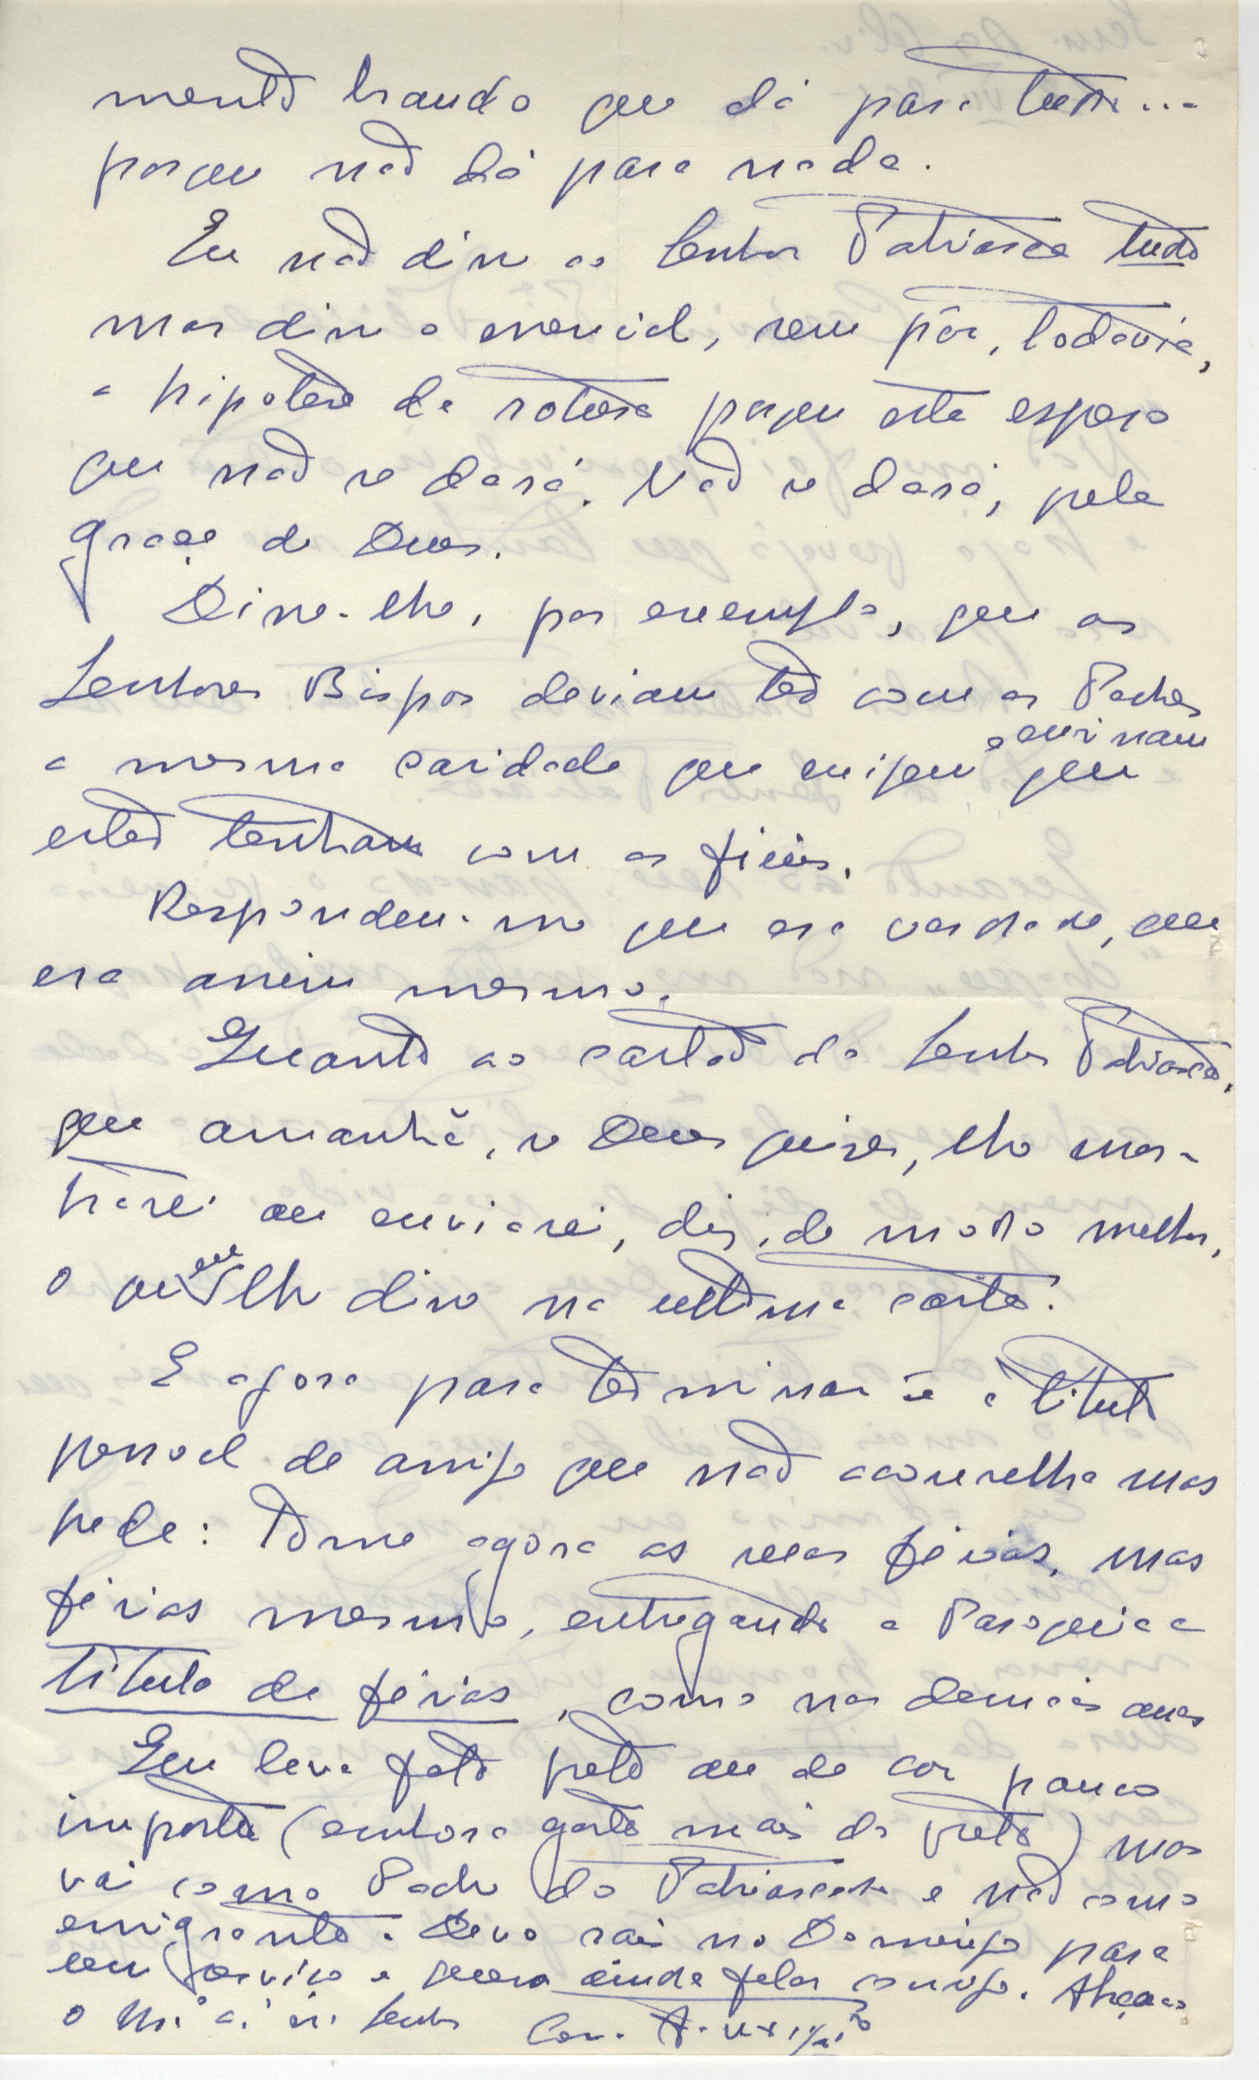 mento brando que dá para tudo...
porque não dá para nada.
Eu não disse ao Senhor Patriarca tudo
mas disse o essencial, sem pôr, todavia,
a hipotese da rotura porque esta espero
que não se dará. Não se dará, pela
graça de Deus.
Disse-lhe, por exemplo, que os
Senhores Bispos deviam ter com os Padres
a mesma caridade que exigem e ensinam que
estes tenham com os fieis.
Respondeu-me que era verdade, que
era assim mesmo.
Quanto ao cartão do Senhor Patriarca,
que amanhã, se Deus quizer, lho mos-
trarei ou enviarei, diz, de modo melhor,
o que eu lhe disse na ultima carta.
E agora para terminar e a titulo
pessoal de amigo que não aconselha mas
pede: Tome agora as suas férias, mas
férias mesmo, entregando a Paroquia a
titulo de férias, como nos demais anos
Que leve fato preto ou de cor pouco
importa (embora goste mais do preto) mas
vai como Padre do Patriarcado e não como
emigrante. Devo sair no Domingo para
um serviço e quero ainda falar consigo. Abraça-o
o